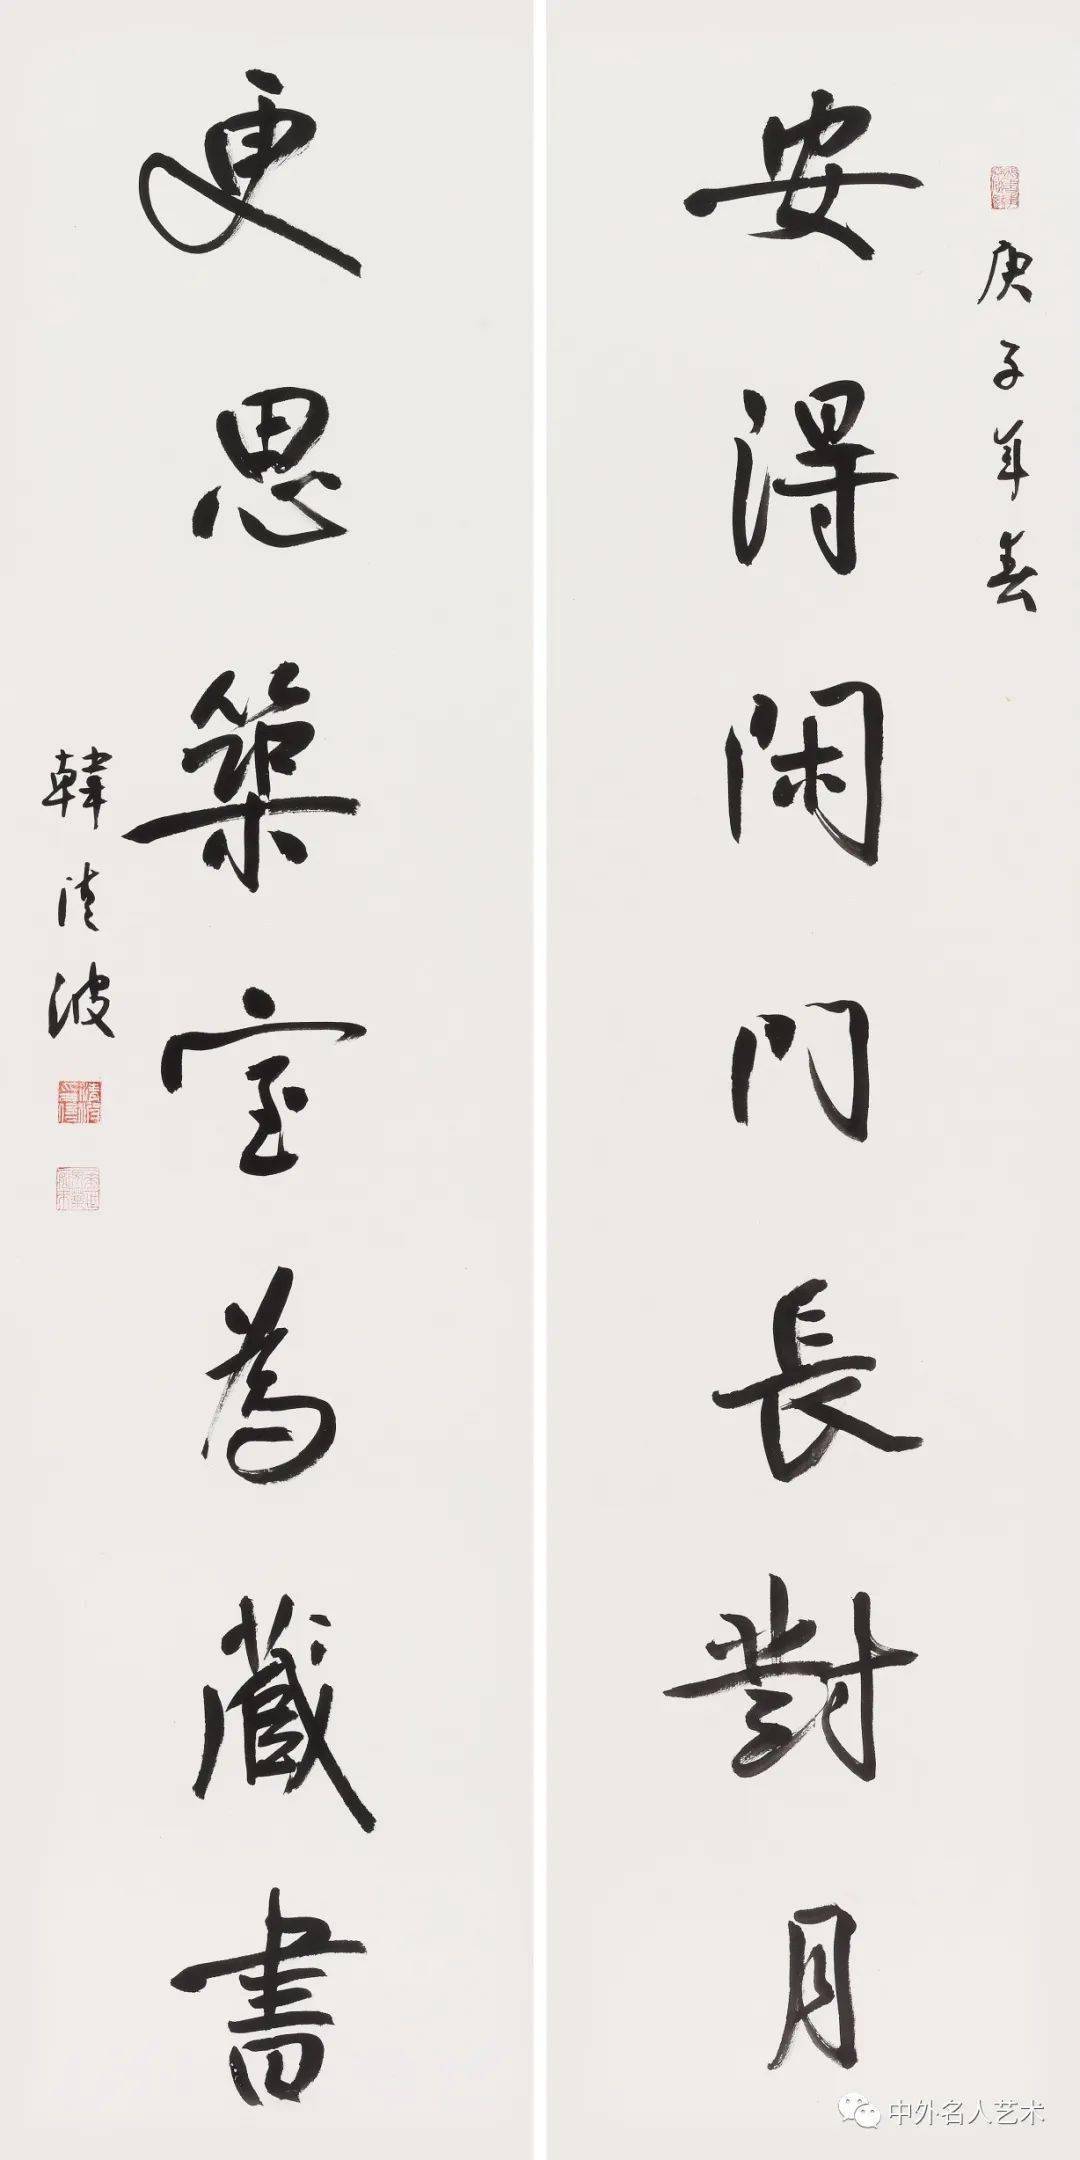 庚子年春
安得閑門長對月
更思築室為藏書
韓清波
中外名人艺术